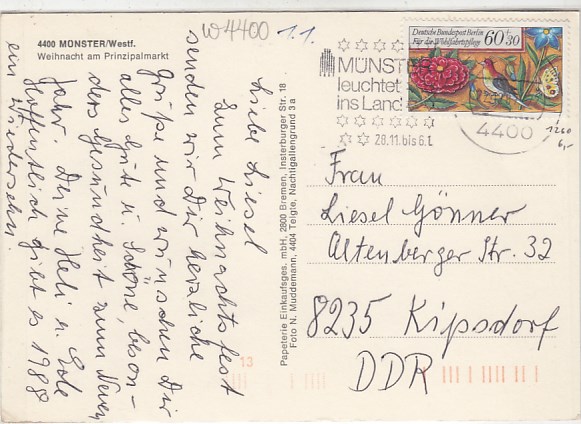 W4400 1.1.
4400 MÜNSTER/Westf.
Weihnacht am Prinzipalmarkt
Liebe Liesel
Zum Weihnachtsfest
senden wir Dir herzliche
Grüße und wünschen Dir
alles Gute u. Schöne, beson-
ders Gesundheit zum Neuen
Jahr. Deine Heli u. Lole
Hoffentlich gibt es 1988
ein Wiedersehn
Papeterie Einkaufsges. mbH, 2800 Bremen, Insterburger Str. 18
Foto N. Muddemann, 4404 Telgte, Nachtigallengrund 3a
MÜNST
leuchtet
ins Land
28.11. bis 6.1.
4400
Deutsche Bundespost Berlin
Für die Wohlfahrtspflege 60+30
1260
6,-
Frau
Liesel Gönner
Altenberger Str. 32
8235 Kipsdorf
DDR
13